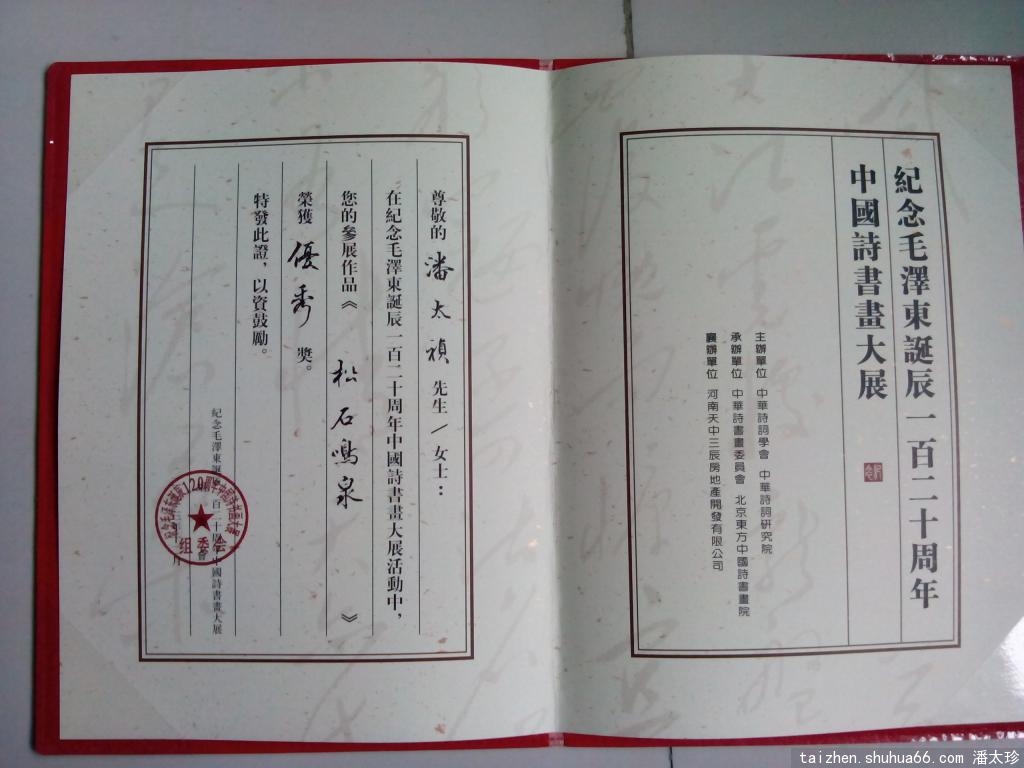 紀念毛澤東誕辰一百二十周年
中國詩書畫大展
主辦單位 中華詩詞學會 中華詩詞研究院
承辦單位 中華詩書畫委員會 北京東方中國詩書畫院
襄辦單位 河南天中三辰房地產開發有限公司
尊敬的 潘太禎 先生/女士：
在紀念毛澤東誕辰一百二十周年中國詩書畫大展活動中，
您的參展作品《 松石鳴泉 》
榮獲 優秀 獎。
特發此證，以資鼓勵。
紀念毛澤東誕辰一百二十周年中國詩書畫大展
組委會
taizhen.shuhua66.com 潘太珍